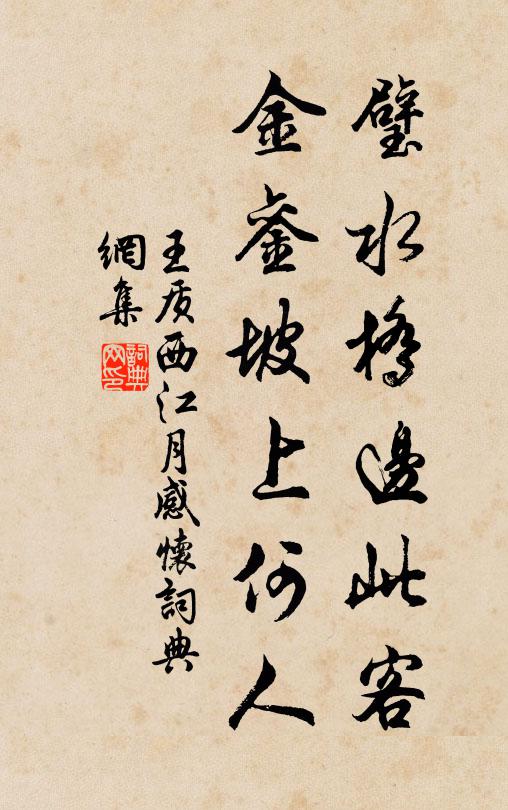 璧水橋邊此客
金銮坡上何人
王质西江月感懷詞典
網集
詞典
网印